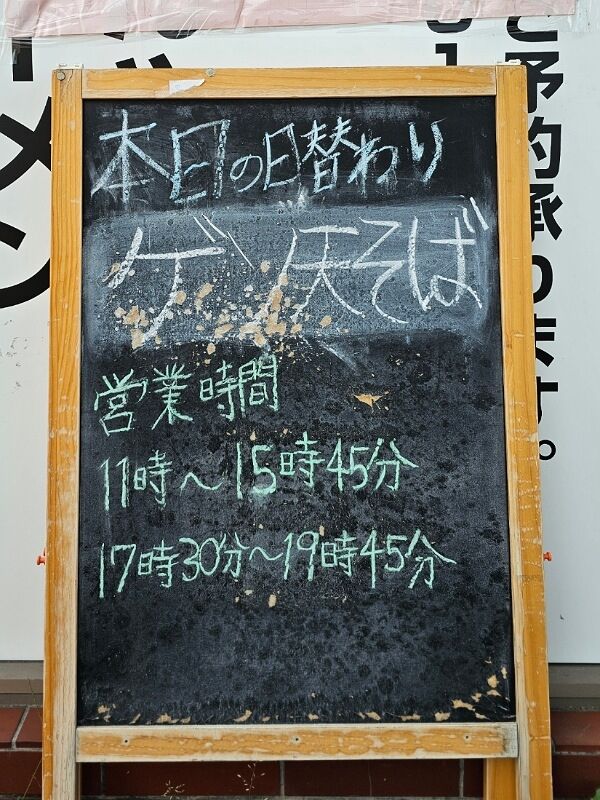 本日の日替わり
ゲソ天そば
営業時間
11時～15時45分
17時30分～19時45分
ご予約承ります。